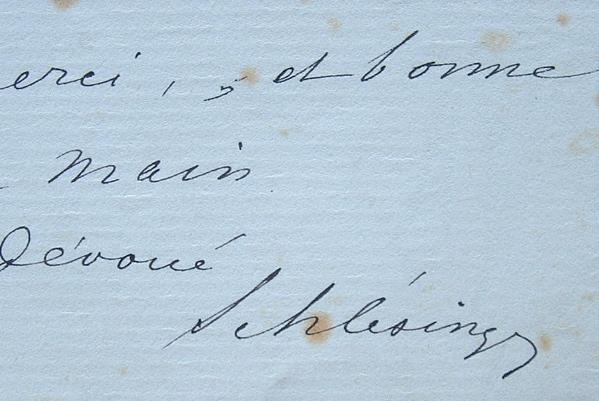 erci, , et bonne
main
Dévoué
Schlésinger